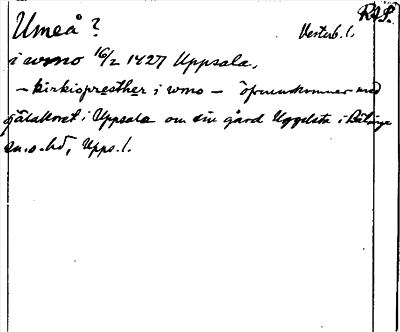 RAP.
Umeå? Vesterb. l.
i wmo 16/2 1427 Uppsala.
– kirkiopresther i wmo – överenskommer med
själakoret i Uppsala om sin gård Uggelsta i Bälinge
sn. o. hd, Upps. l.